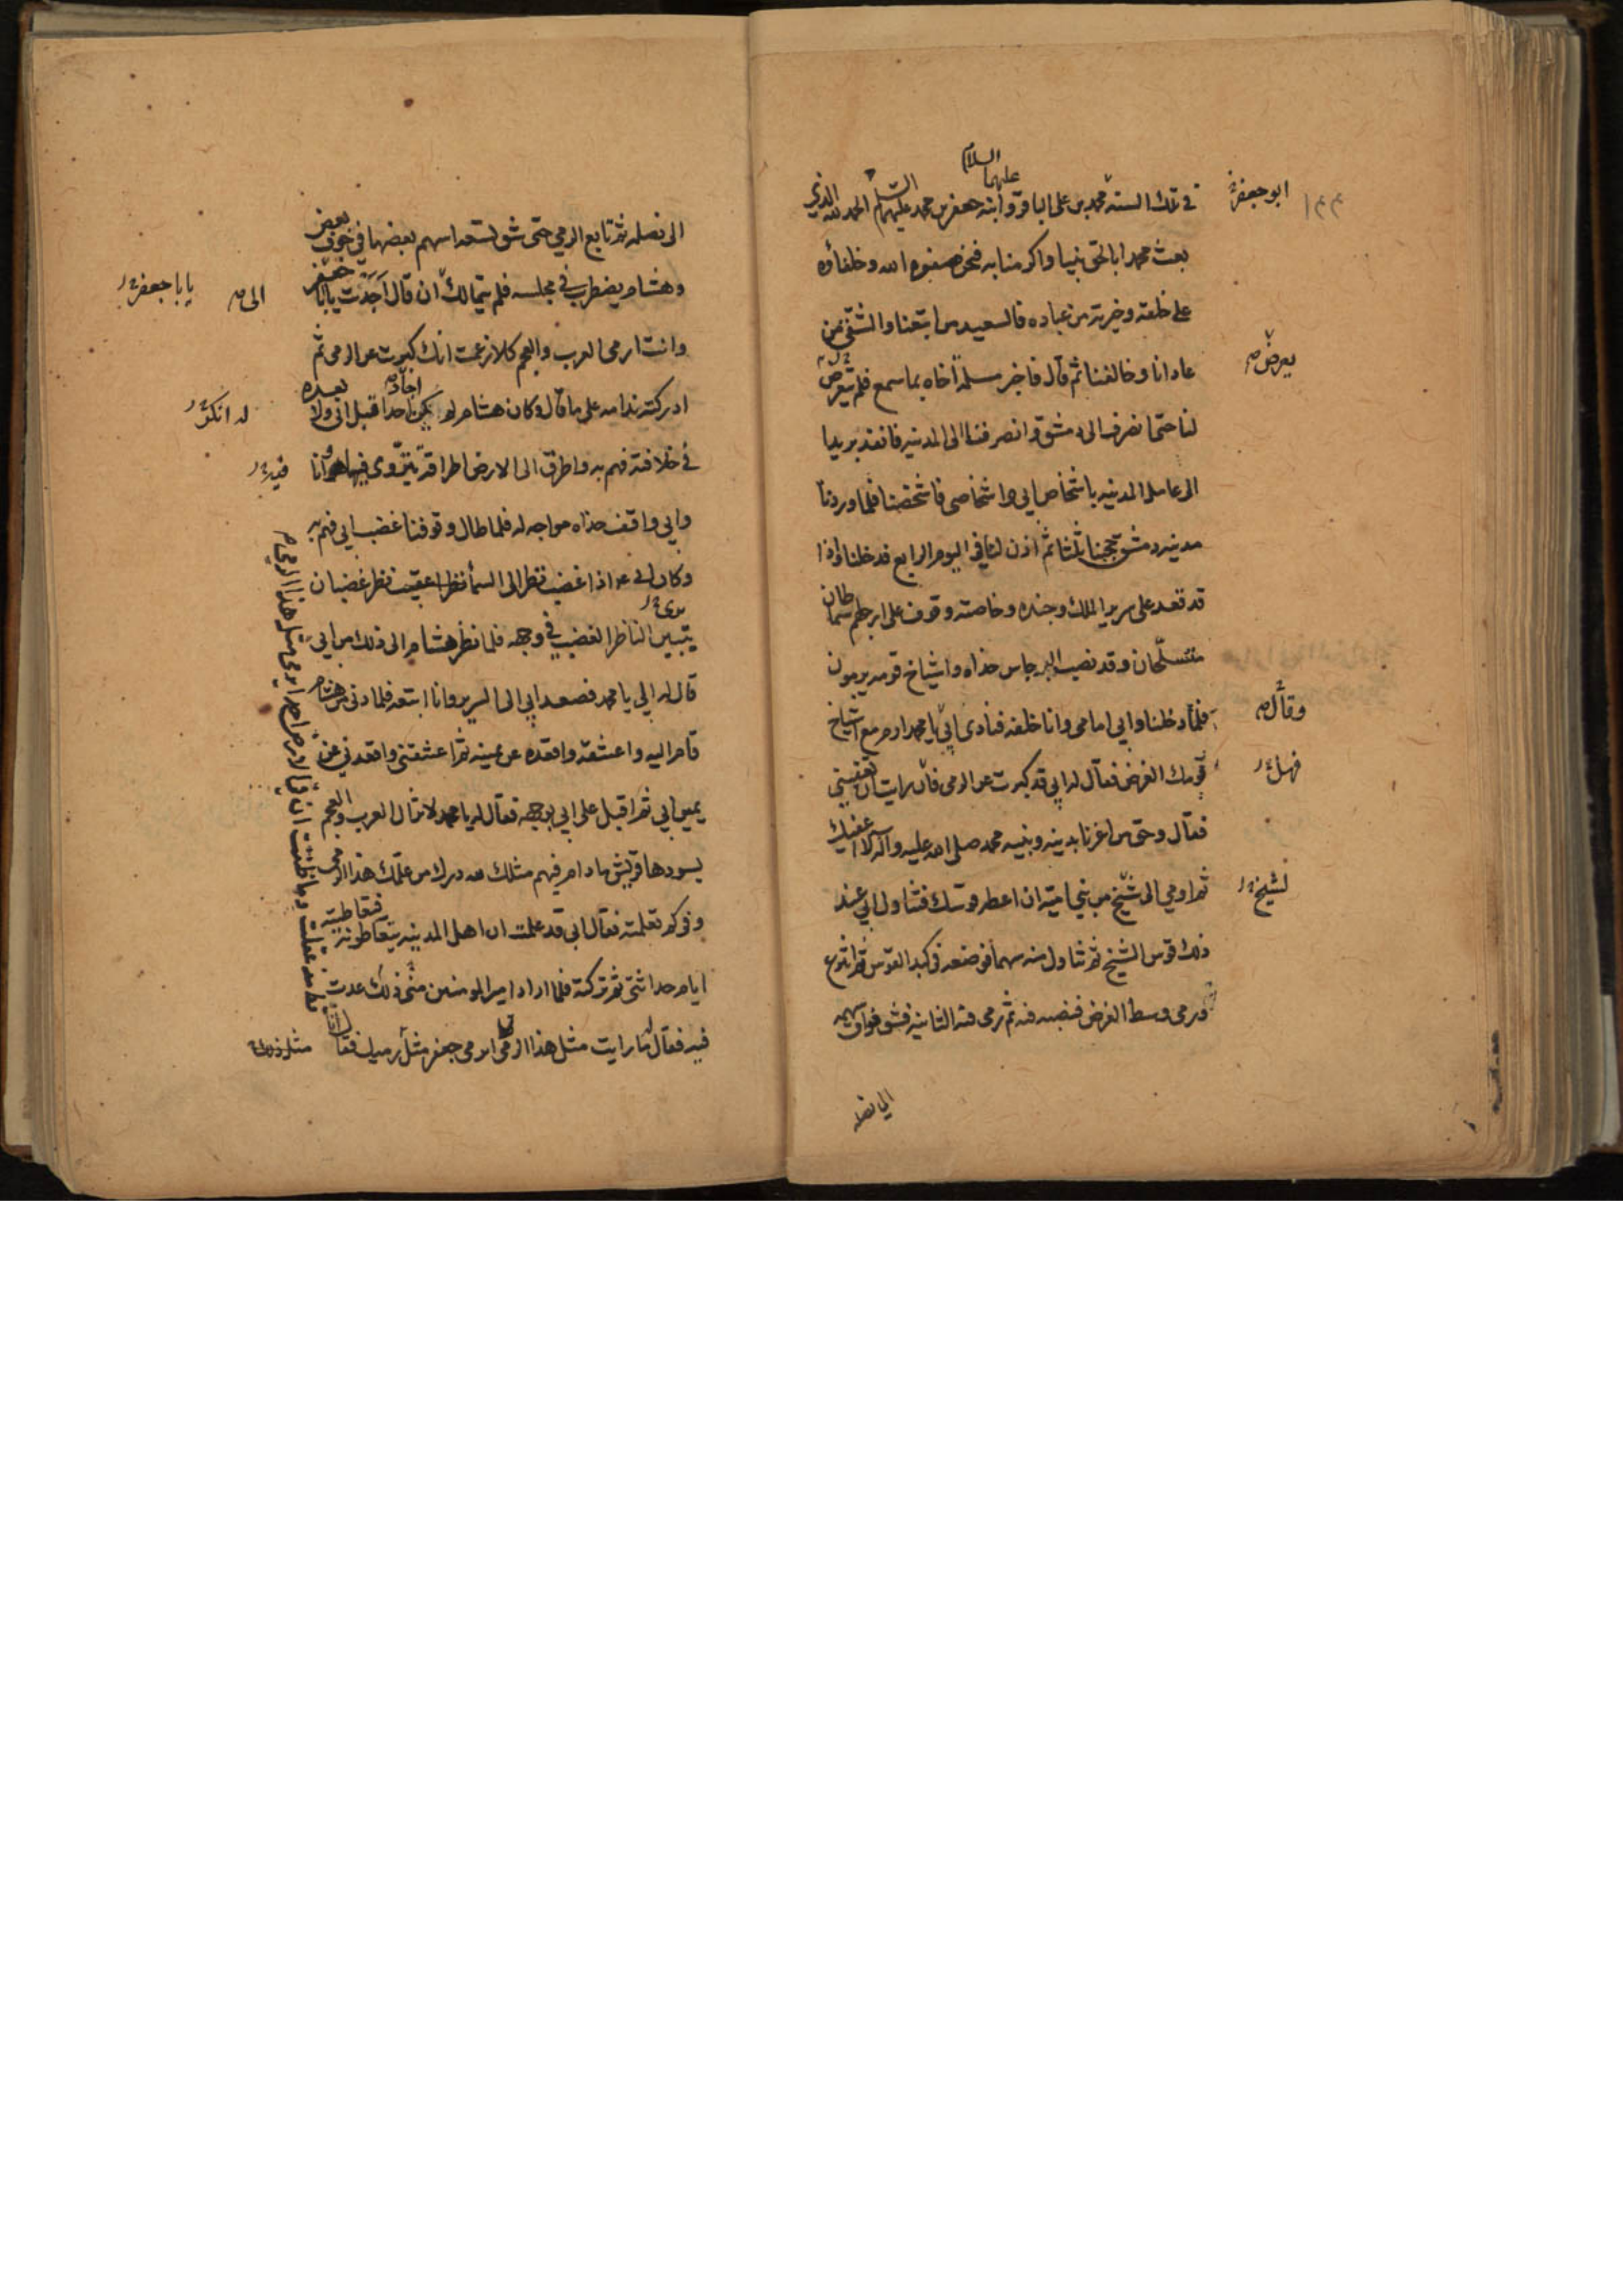 في تلك السنة محمد بن علي الباقر وابنه جعفر بن محمد عليهما السلام الحمد لله الذي
ابو جعفر
بعث محمدا بالحق نبيا واكرمنا به فنحن صفوة الله وخلفاؤه
على خلقه وخيرته من عباده فالسعيد من اتبعنا والشقي من
عادانا وخالفنا ثم قال فاخبر مسلمة اخاه بما سمع فلم يعرض
يعرض
لنا حتى انصرف الى دمشق وانصرفنا الى المدينه فانفذ بريدا
الى عامل المدينه باشخاص ابي واشخاصي فاشخصنا فلما وردنا
مدينه دمشق حجبنا ثلثا ثم اذن لنا في اليوم الرابع فدخلنا واذا
قد قعد على سرير الملك وجنده وخاصته وقوف على ارجلهم سماطان
متسلحان وقد نصب البرجاس حذاه واشياخ قومه يرمون
فلما دخلنا وابي امامي وانا خلفه فنادى ابي يا محمد ارم مع اشياخ
وقال
قومك الغرض فقال له ابي قد كبرت عن الرمي فان رايت ان تعفيني
فهل
فقال وحق من اعزنا بدينه ونبيه محمد صلى الله عليه واله لا اعفيك
ثم اومي الى شيخ من بني اميه ان اعطه قوسك فتناول ابي عند
لشيخ
ذلك قوس الشيخ ثم تناول منه سهما فوضعه في كبد القوس ثم انتزع
ورمى وسط الغرض فنصبه فيه ثم رمى فيه الثانيه فشق فواق سهمه
الى نصله
الى نصله ثم تابع الرمي حتى شق تسعه اسهم بعضها في جوف بعض
وهشام يضطرب في مجلسه فلم يتمالك ان قال اجدت يا با جعفر
الى
يا با جعفر
وانت ارمى العرب والعجم كلا زعمت انك كبرت عن الرمي ثم
ادركته ندامه على ما قال وكان هشام لم يكن احدا قبل ابي ولا بعده
اجاد
في خلافته فهم به واطرق الى الارض اطراقة يتروى فيها وانا
فيه
وابي واقف حذاه مواجه له فلما طال وقوفنا غضب ابي فهم به
وكان ابي اذا غضب نظر الى السماء نظر غضبان
يرى
يتبين الناظر الغضب في وجهه فلما نظر هشام الى ذلك من ابي
قال له الي يا محمد فصعد ابي الى السرير وانا اتبعه فلما دنى من هشام
قام اليه واعتنقه واقعده عن يمينه ثم اعتنقني واقعدني عن
يمين ابي ثم اقبل على ابي بوجهه فقال له يا محمد لا تزال العرب والعجم
يسودها قريش ما دام فيهم مثلك لله درك من علمك هذا الرمي
وفي كم تعلمته فقال ابي قد علمت ان اهل المدينه يتعاطونه فتعاطيته
ايام حداثتي ثم تركته فلما اراد امير المومنين مني ذلك عدت
فيه فقال له ما رايت مثل هذا الرمي ايرمي جعفر مثل رميك فقال
مثل ذلك
قط مذ عقلت وما ظننت ان في الارض احد يرمي مثل هذا الرمي